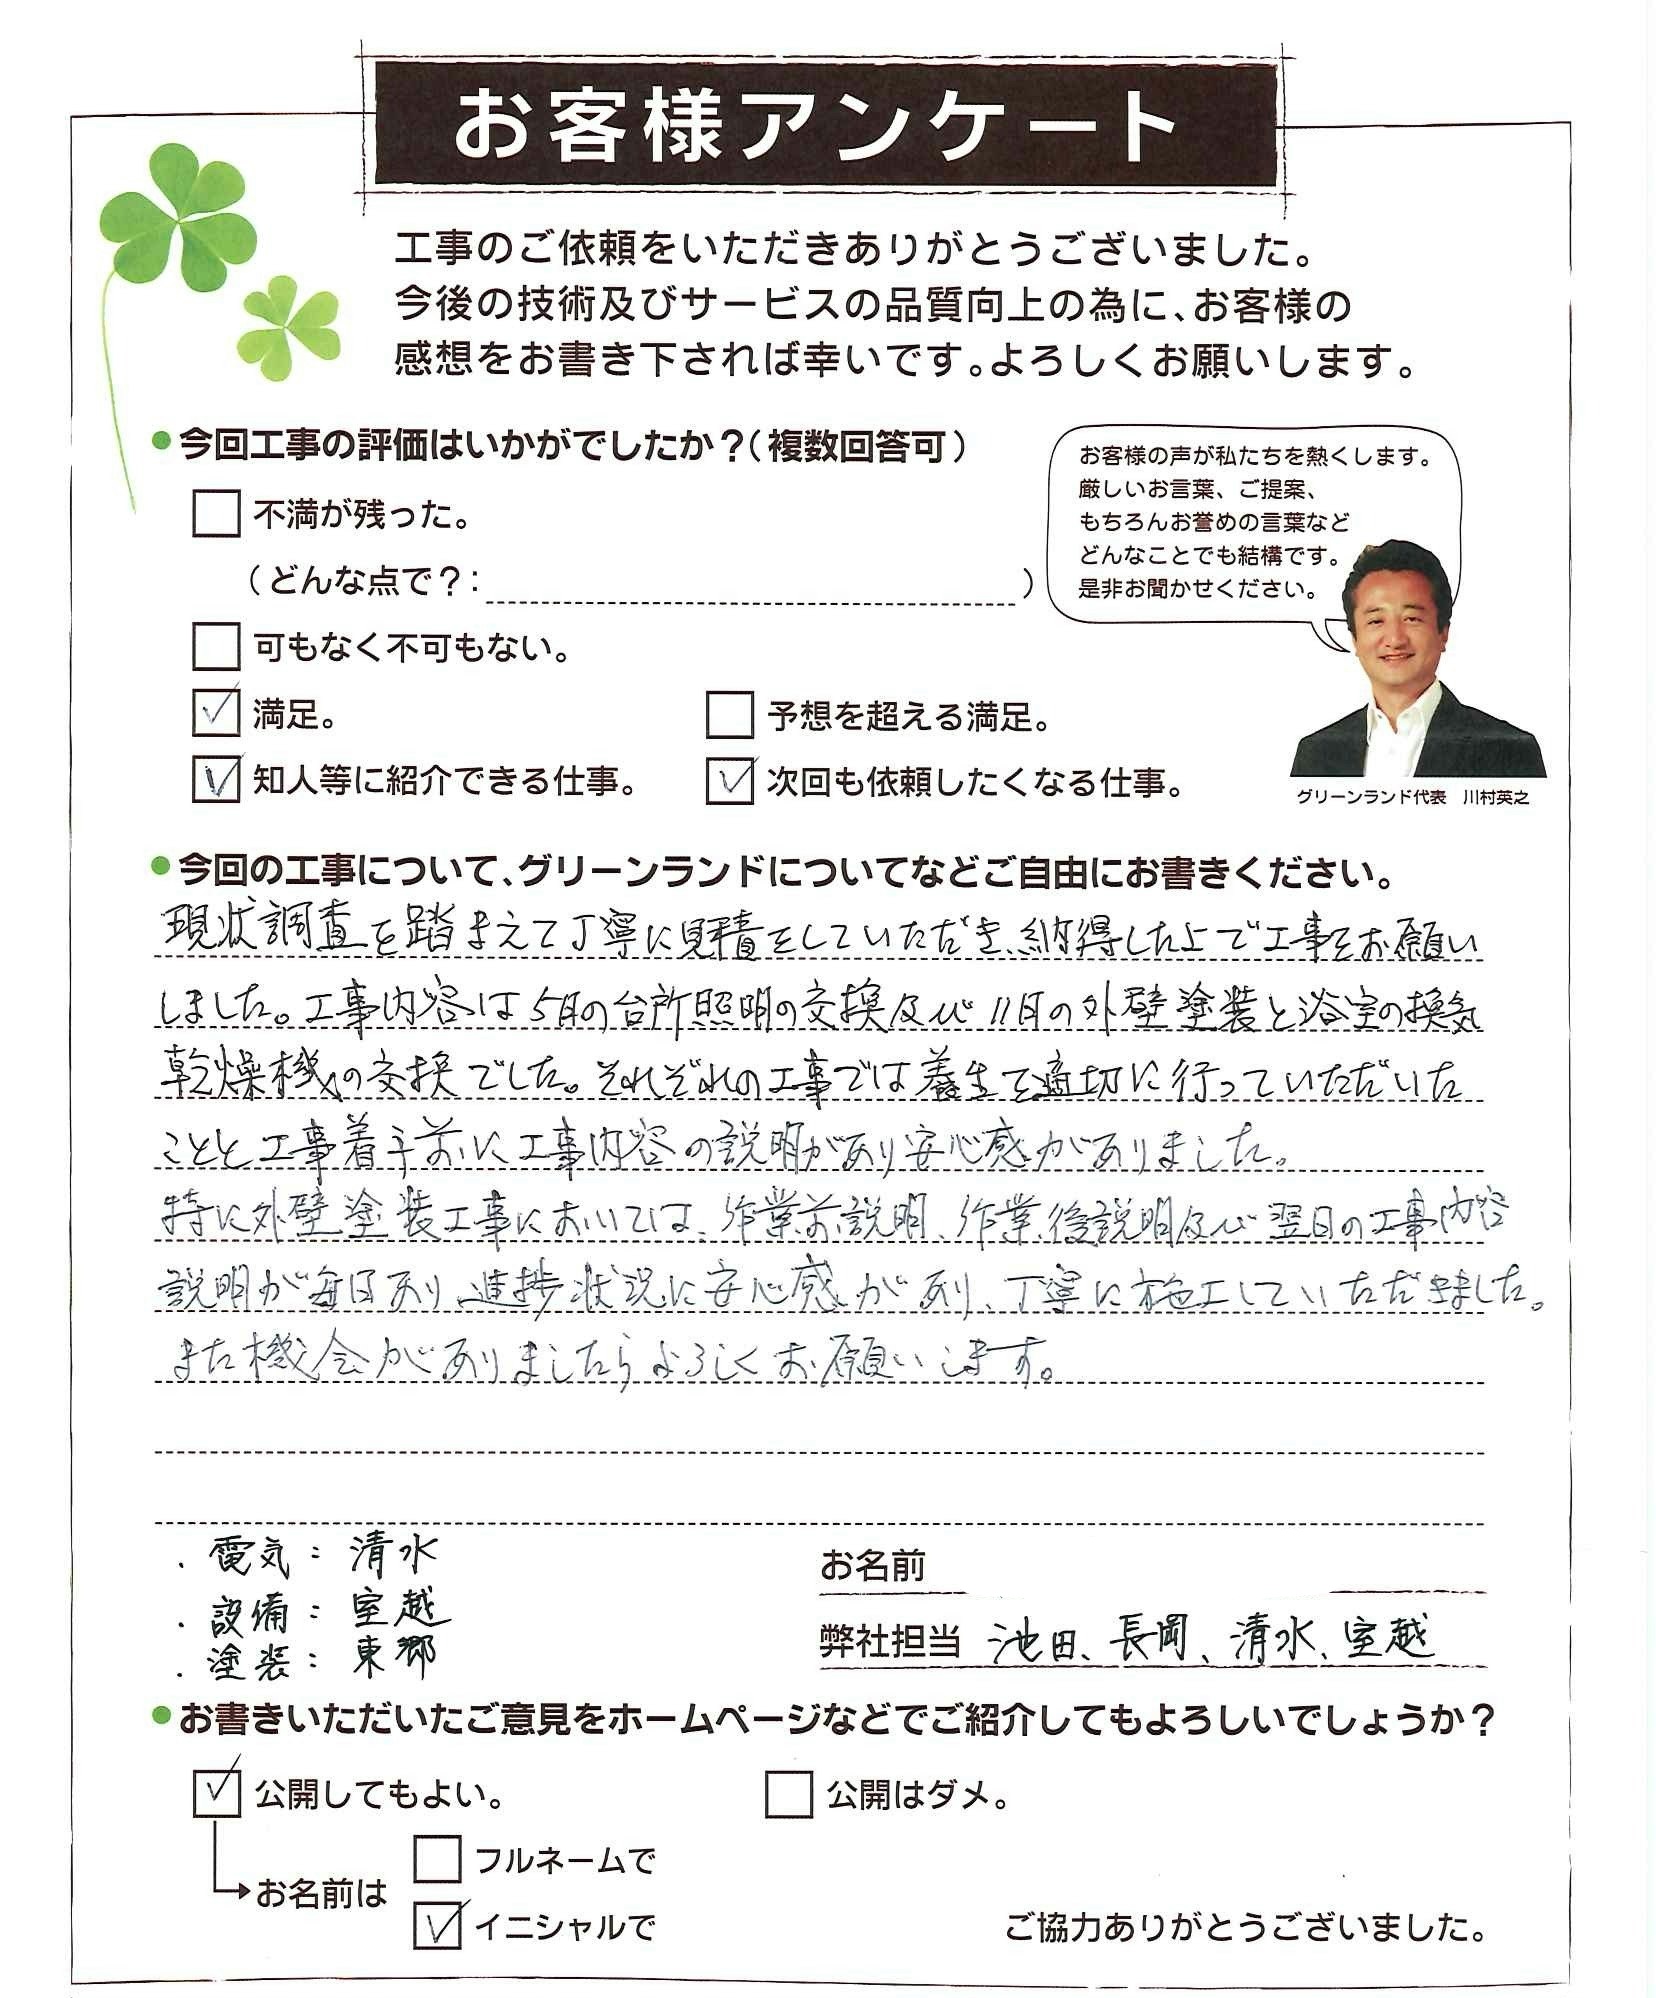 お客様アンケート
工事のご依頼をいただきありがとうございました。
今後の技術及びサービスの品質向上の為に、お客様の
感想をお書き下されば幸いです。よろしくお願いします。
今回工事の評価はいかがでしたか？(複数回答可)
不満が残った。
(どんな点で？: )
可もなく不可もない。
満足。
予想を超える満足。
知人等に紹介できる仕事。
次回も依頼したくなる仕事。
お客様の声が私たちを熱くします。
厳しいお言葉、ご提案、
もちろんお誉めの言葉など
どんなことでも結構です。
是非お聞かせください。
グリーンランド代表 川村英之
今回の工事について、グリーンランドについてなどご自由にお書きください。
現状調査を踏まえて丁寧に見積をしていただき、納得した上で工事をお願い
しました。工事内容は5月の台所照明の交換及び11月の外壁塗装と浴室の換気
乾燥機の交換でした。それぞれの工事では養生を適切に行っていただいた
ことと工事着手前に工事内容の説明があり安心感がありました。
特に外壁塗装工事においては、作業前説明、作業後説明及び翌日の工事内容
説明が毎日あり、進捗状況に安心感があり、丁寧に施工していただきました。
また機会がありましたらよろしくお願いします。
・電気：清水
・設備：室越
・塗装：東郷
お名前
弊社担当 池田、長岡、清水、室越
お書きいただいたご意見をホームページなどでご紹介してもよろしいでしょうか？
公開してもよい。
公開はダメ。
お名前は
フルネームで
イニシャルで
ご協力ありがとうございました。